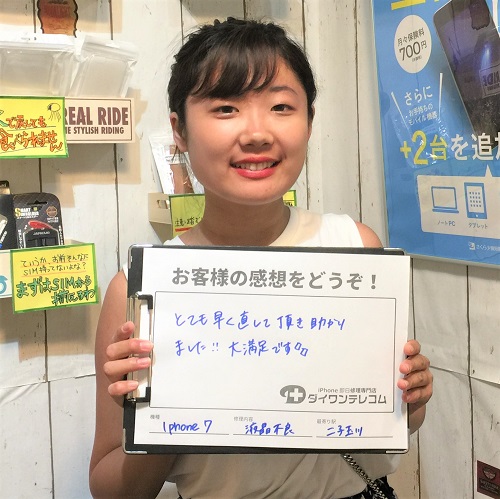 REAL RIDE
THE STYLISH RIDING
月々保険料
700円
さらに
お手持ちの
モバイル機器
+2台を追
ノートPC
タブレット
まずはSIMから
お客様の感想をどうぞ！
とても早く直して頂き助かり
ました!! 大満足です
iPhone 即日修理専門店
ダイワンテレコム
機種
iphone 7
修理内容
液晶不良
最寄り駅
二子玉川